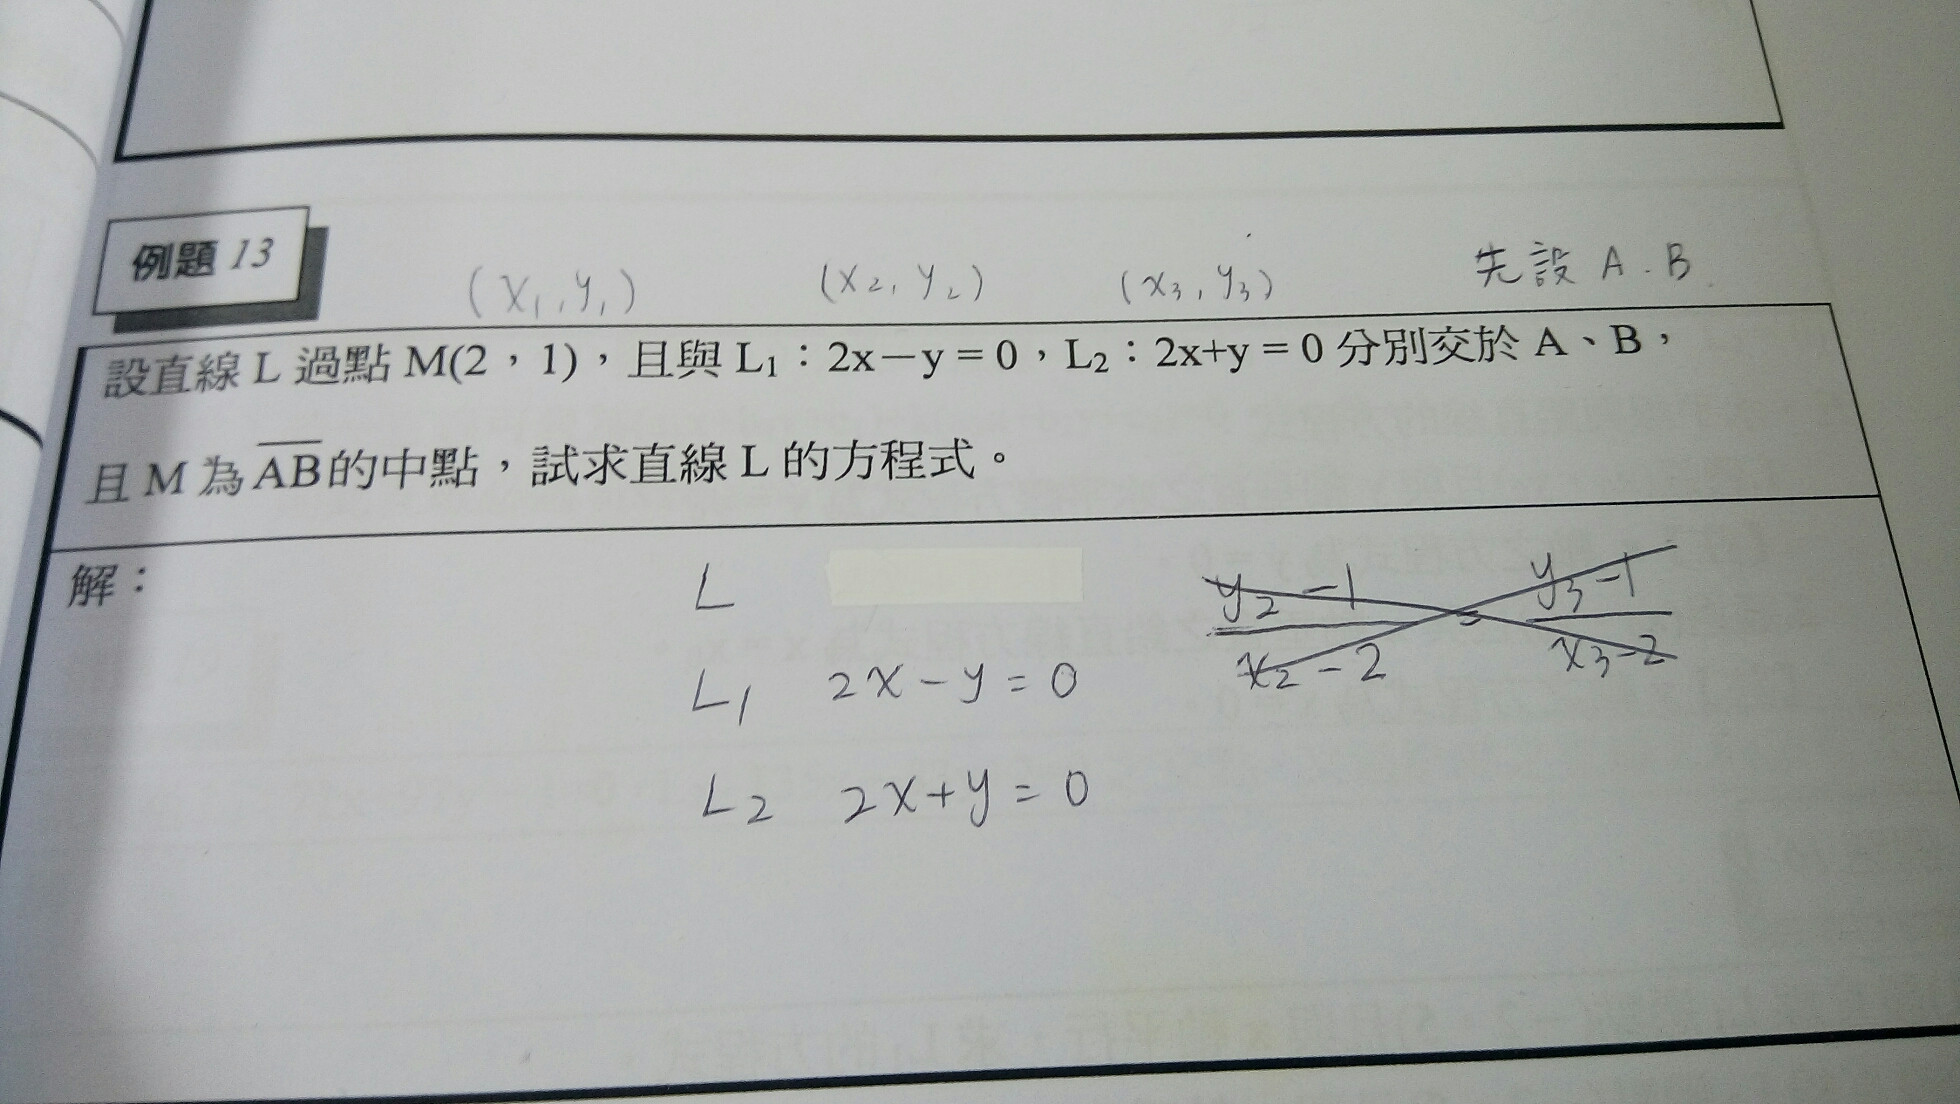 例題 13
(x₁, y₁) (x₂, y₂) (x₃, y₃) 先設 A. B
設直線 L 過點 M(2，1)，且與 L₁：2x－y = 0，L₂：2x+y = 0 分別交於 A、B，
且 M 為 A̅B̅ 的中點，試求直線 L 的方程式。
解：
L
L₁ 2x－y = 0
L₂ 2x+y = 0
(y₂－1)/(x₂－2) = (y₃－1)/(x₃－2)